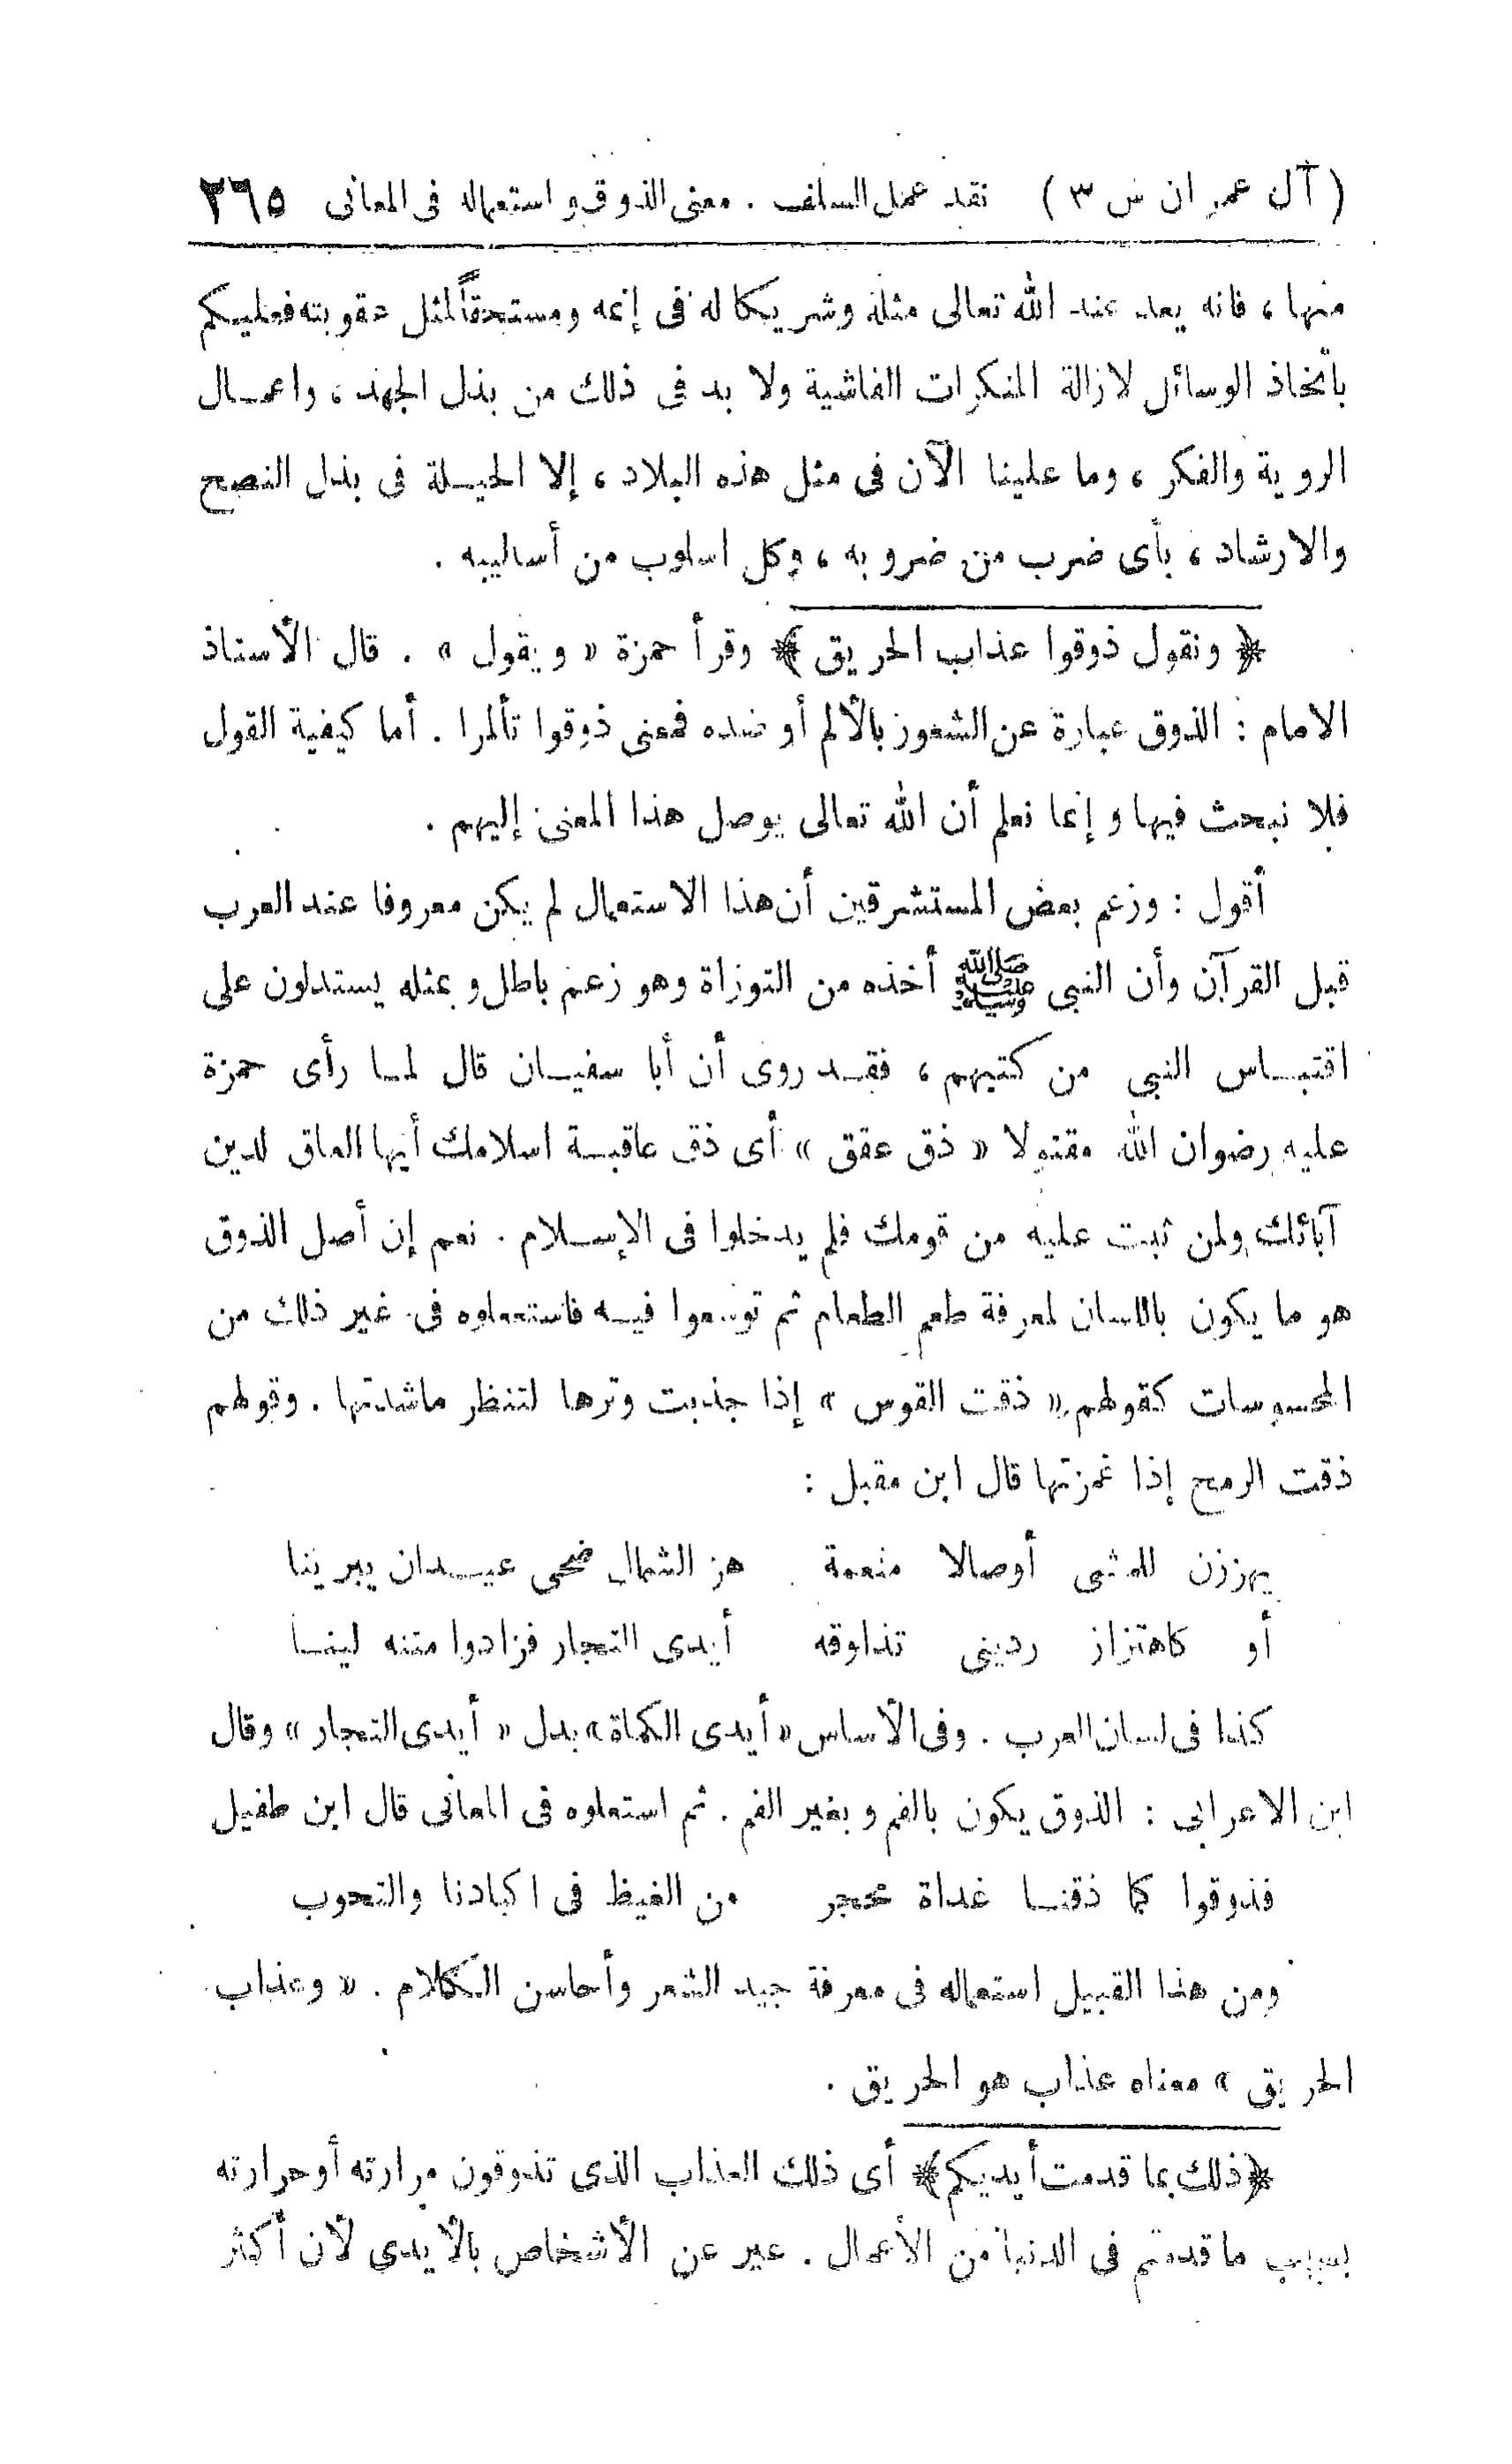 ( آل عمران س ٣ ) نقد عمل السلف . معنى الذوق واستعماله فى المعانى ٢٦٥
منها ، فانه يعد عند الله تعالى مثله وشريكا له فى إثمه ومستحقاً لمثل عقوبته فعليكم
باتخاذ الوسائل لازالة المنكرات الفاشية ولا بد فى ذلك من بذل الجهد ، واعمال
الروية والفكر ، وما علينا الآن فى مثل هذه البلاد ، إلا الحيلة فى بذل النصح
والارشاد ، بأى ضرب من ضروبه ، وكل اسلوب من أساليبه .
﴿ ونقول ذوقوا عذاب الحريق ﴾ وقرأ حمزة « ويقول » . قال الأستاذ
الامام : الذوق عبارة عن الشعور بالألم أو ضده فمعنى ذوقوا تألموا . أما كيفية القول
فلا نبحث فيها وإنما نعلم أن الله تعالى يوصل هذا المعنى إليهم .
أقول : وزعم بعض المستشرقين أن هذا الاستعمال لم يكن معروفا عند العرب
قبل القرآن وأن النبى ﷺ أخذه من التوراة وهو زعم باطل وبمثله يستدلون على
اقتباس النبى من كتبهم ، فقد روى أن أبا سفيان قال لما رأى حمزة
عليه رضوان الله مقتولا « ذق عقق » أى ذق عاقبة اسلامك أيها العاق لدين
آبائك ولمن ثبت عليه من قومك فلم يدخلوا فى الإسلام . نعم إن أصل الذوق
هو ما يكون باللسان لمعرفة طعم الطعام ثم توسعوا فيه فاستعملوه فى غير ذلك من
المحسوسات كقولهم « ذقت القوس » إذا جذبت وترها لتنظر ماشدتها . وقولهم
ذقت الرمح إذا غمزتها قال ابن مقبل :
يهززن للمشى أوصالا منعمة هز الشمال ضحى عيدان يبرينا
أو كاهتزاز ردينى تذاوقه أيدى التجار فزادوا متنه لينا
كذا فى لسان العرب . وفى الأساس « أيدى الكماة » بدل « أيدى التجار » وقال
ابن الاعرابى : الذوق يكون بالفم وبغير الفم . ثم استعملوه فى المعانى قال ابن طفيل
فذوقوا كما ذقنا غداة محجر من الغيظ فى اكبادنا والتحوب
ومن هذا القبيل استعماله فى معرفة جيد الشعر وأحاسن الكلام . « وعذاب
الحريق » معناه عذاب هو الحريق .
﴿ ذلك بما قدمت أيديكم ﴾ أى ذلك العذاب الذى تذوقون مرارته أو حرارته
بسبب ما قدمتم فى الدنيا من الأعمال . عبر عن الأشخاص بالأيدى لأن أكثر